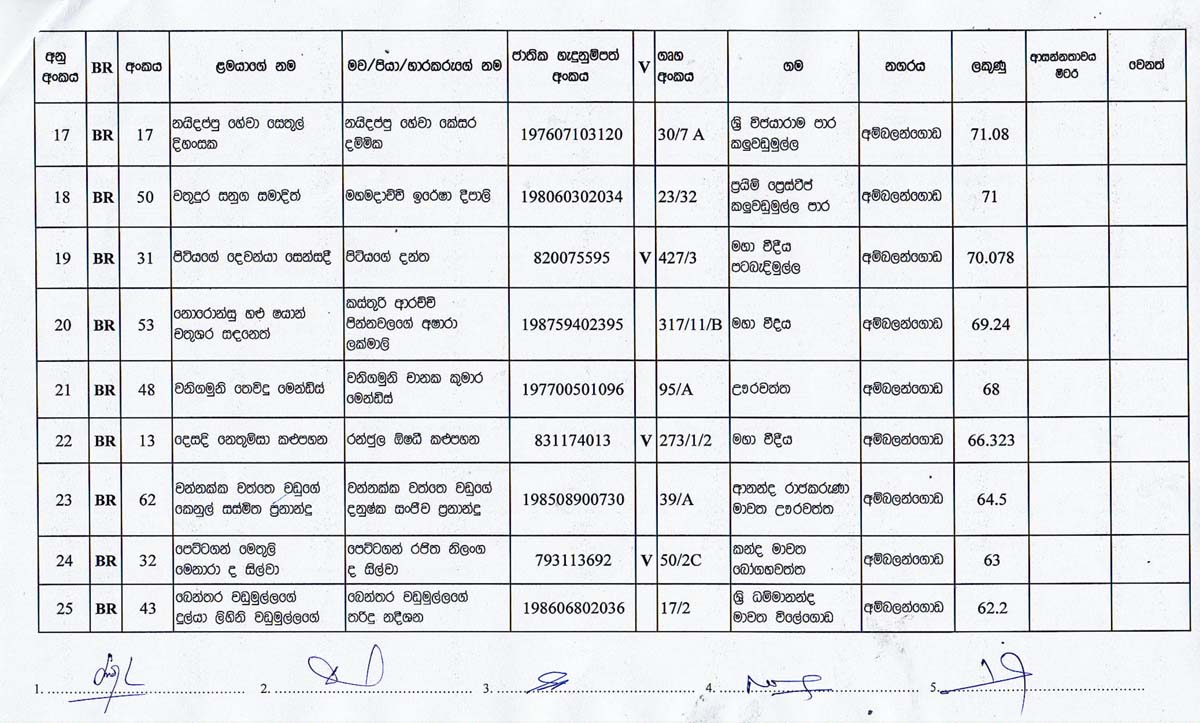 අනු අංකය BR අංකය ළමයාගේ නම මව/පියා/භාරකරුගේ නම ජාතික හැඳුනුම්පත් අංකය V ගෘහ අංකය ගම නගරය ලකුණු ආසන්නතාවය මීටර් වෙනත්
17 BR 17 නයිදප්පු හේවා සෙතුල් දිහංසක නයිදප්පු හේවා කේසර දම්මික 197607103120 30/7 A ශ්‍රී විජයාරාම පාර කලුවඩුමුල්ල අම්බලන්ගොඩ 71.08
18 BR 50 වතුදුර සනුග සමාදිත් මහමදාච්චි ඉරේෂා දීපාලි 198060302034 23/32 ප්‍රයිම් ප්‍රෙස්ටීජ් කලුවඩුමුල්ල පාර අම්බලන්ගොඩ 71
19 BR 31 පිටියගේ දෙවන්යා සෙන්සදී පිටියගේ දන්ත 820075595 V 427/3 මහා වීදිය පටබැඳිමුල්ල අම්බලන්ගොඩ 70.078
20 BR 53 නොරොන්සු හළු ෂයාන් චතුශර සඳනෙත් කස්තුරි ආරච්චි පින්නවලගේ අෂාරා ලක්මාලි 198759402395 317/11/B මහා වීදිය අම්බලන්ගොඩ 69.24
21 BR 48 වනිගමුනි තෙවිඳු මෙන්ඩිස් වනිගමුනි චානක කුමාර මෙන්ඩිස් 197700501096 95/A ඌරවත්ත අම්බලන්ගොඩ 68
22 BR 13 දෙසඳි නෙතුම්සා කළුපහන රන්ජුල ඕෂධී කළුපහන 831174013 V 273/1/2 මහා වීදිය අම්බලන්ගොඩ 66.323
23 BR 62 වන්නක්ක වත්තෙ වඩුගේ කෙනුල් සස්මිත ප්‍රනාන්දු වන්නක්ක වත්තෙ වඩුගේ දනුෂ්ක සංජීව ප්‍රනාන්දු 198508900730 39/A ආනන්ද රාජකරුණා මාවත ඌරවත්ත අම්බලන්ගොඩ 64.5
24 BR 32 පෙට්ටගන් මෙතුලි මෙනාරා ද සිල්වා පෙට්ටගන් රජිත නිලංග ද සිල්වා 793113692 V 50/2C කන්ද මාවත බෝගහවත්ත අම්බලන්ගොඩ 63
25 BR 43 බෙන්තර වඩුමුල්ලගේ දුල්යා ලිහිනි වඩුමුල්ලගේ බෙන්තර වඩුමුල්ලගේ තරිඳු නදීශන 198606802036 17/2 ශ්‍රී ධම්මානන්ද මාවත විලේගොඩ අම්බලන්ගොඩ 62.2
1. 2. 3. 4. 5.